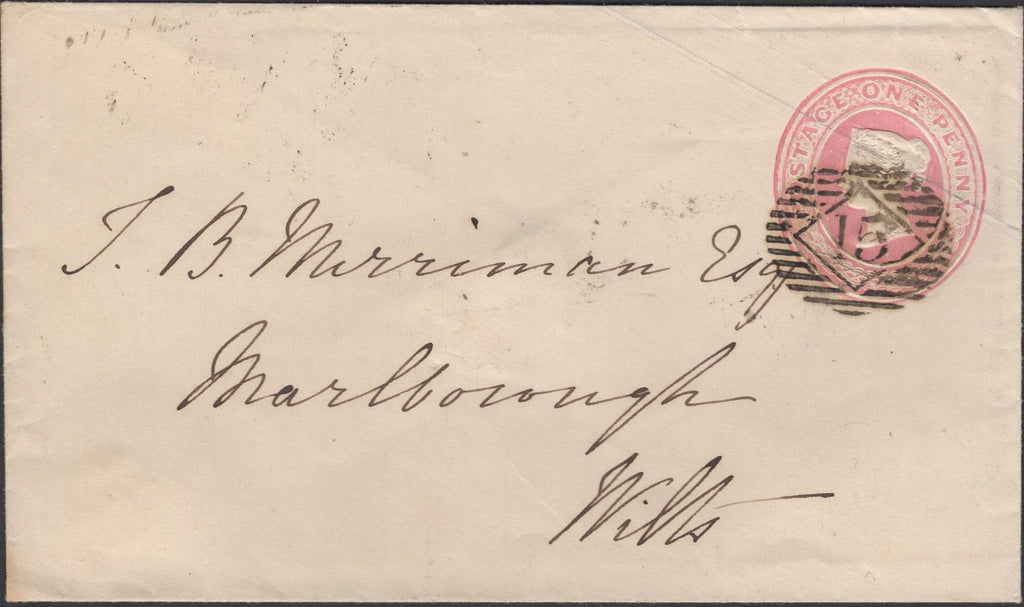 POSTAGE ONE PENNY
15
T. B. Merriman Esq
Marlborough
Wilts